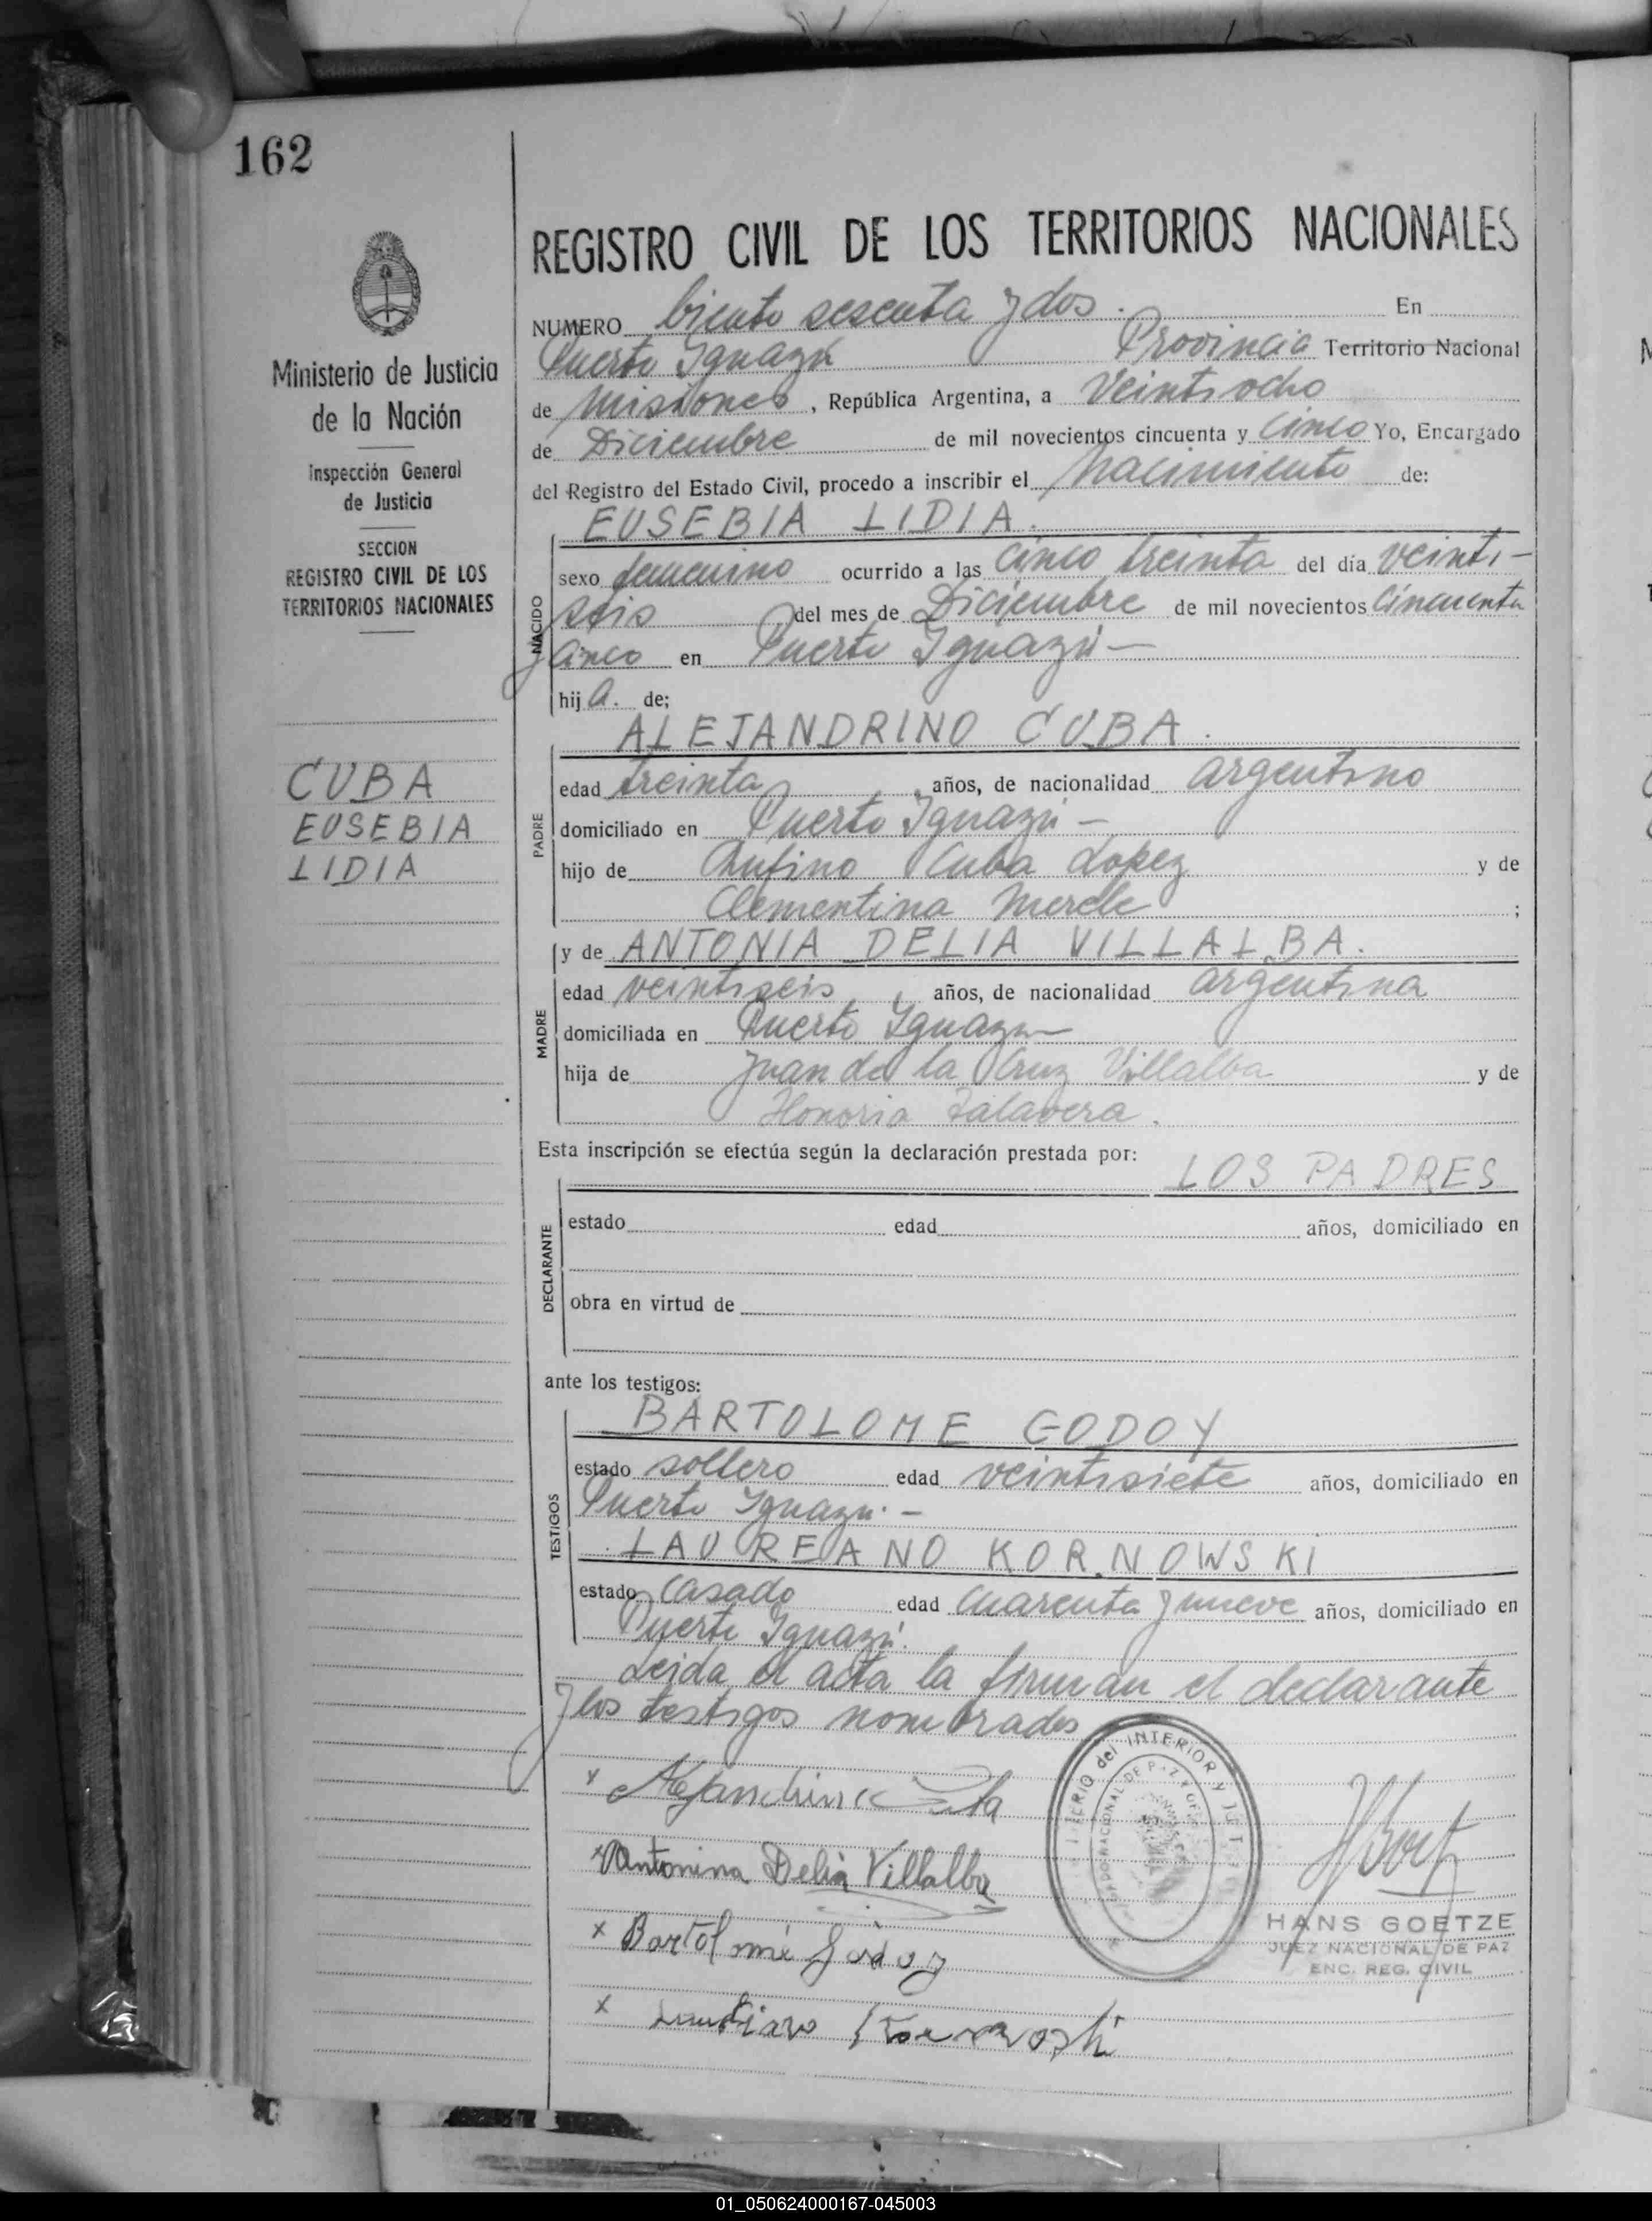 162
Ministerio de Justicia
de la Nación
Inspección General
de Justicia
SECCION
REGISTRO CIVIL DE LOS
TERRITORIOS NACIONALES
CUBA
EUSEBIA
LIDIA
REGISTRO CIVIL DE LOS TERRITORIOS NACIONALES
NUMERO Ciento sesenta y dos. En
Puerto Iguazú Provincia Territorio Nacional
de Misiones, República Argentina, a Veintiocho
de Diciembre de mil novecientos cincuenta y cinco Yo, Encargado
del Registro del Estado Civil, procedo a inscribir el Nacimiento de:
EUSEBIA LIDIA.
NACIDO
sexo femenino ocurrido a las cinco treinta del día veinti-
seis del mes de Diciembre de mil novecientos cincuenta
y cinco en Puerto Iguazú-
hija. de;
ALEJANDRINO CUBA.
PADRE
edad treinta años, de nacionalidad argentino
domiciliado en Puerto Iguazú-
hijo de Rufino Cuba Lopez y de
Clementina Merele ;
y de ANTONIA DELIA VILLALBA.
MADRE
edad veintiseis años, de nacionalidad argentina
domiciliada en Puerto Iguazu
hija de Juan de la Cruz Villalba y de
Honoria Talavera.
Esta inscripción se efectúa según la declaración prestada por:
LOS PADRES
DECLARANTE
estado edad años, domiciliado en
obra en virtud de
ante los testigos:
BARTOLOME GODOY
TESTIGOS
estado soltero edad veintisiete años, domiciliado en
Puerto Iguazú.-
LAUREANO KORNOWSKI
estado casado edad cuarenta y nueve años, domiciliado en
Puerto Iguazú.
Leida el acta la firman el declarante
y los testigos nombrados
x Alejandrino Cuba
x Antonina Delia Villalba
x Bartolomé Godoy
x
INTERIOR Y
HANS GOETZE
JUEZ NACIONAL DE PAZ
ENC. REG. CIVIL
01_050624000167-045003